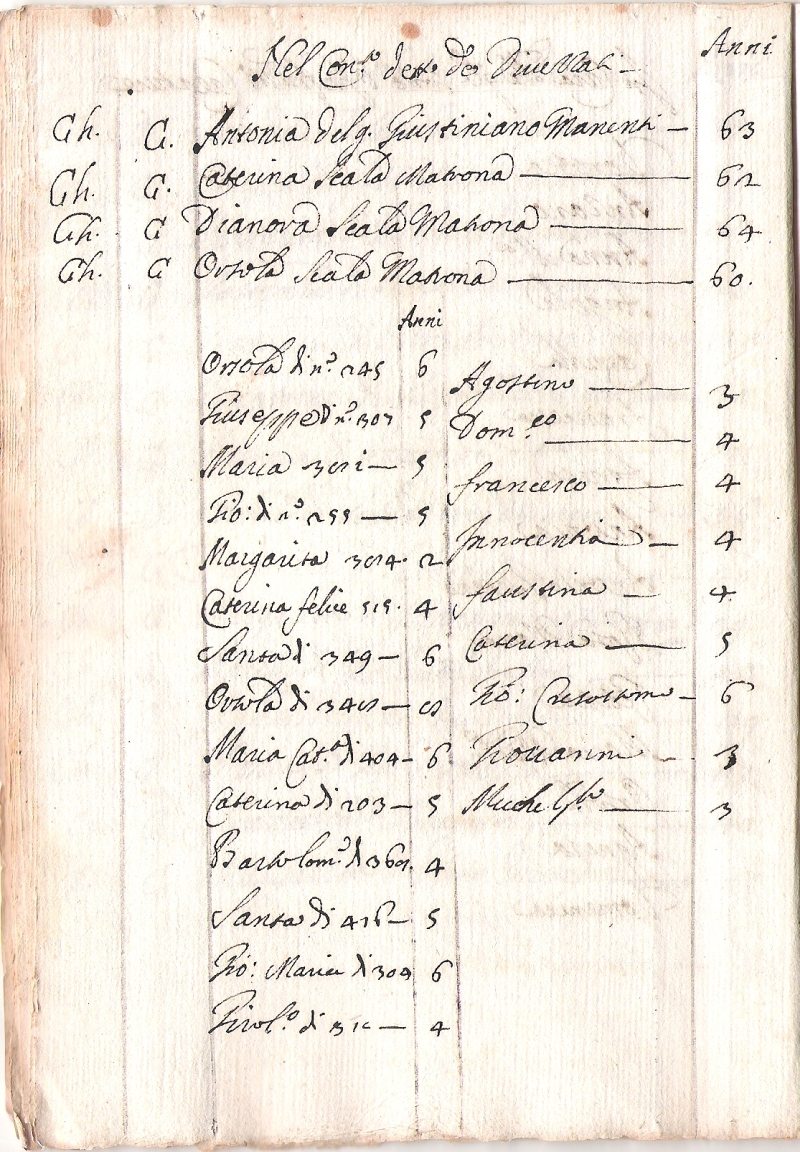 Nel Con.to detto de Diuerzati Anni
Ch. C. Antonia del q. Giustiniano Manenti — 63
Ch. C. Caterina Scala Matrona — 62
Ch. C Dianora Scala Matrona — 64
Ch. C Orsola Scala Matrona — 60.
Anni
Orsola di n.o 245 6
Giuseppe di n.o 307 5
Maria — 5
Gio: di n.o 255 — 5
Margarita 2
Caterina felice 515. 4
Santa di 349 — 6
Orsola di —
Maria Cat.a di 404 — 6
Caterina di 203 — 5
Bartolom.o di 4
Santa di 416 — 5
Gio: Maria di 304 6
Girol.o di — 4
Agostino — 3
Dom.co — 4
francesco — 4
Innocentia — 4
faustina — 4.
Caterina — 5
Gio: Crisostimo — 6
Giouanni — 3
Michel — 3